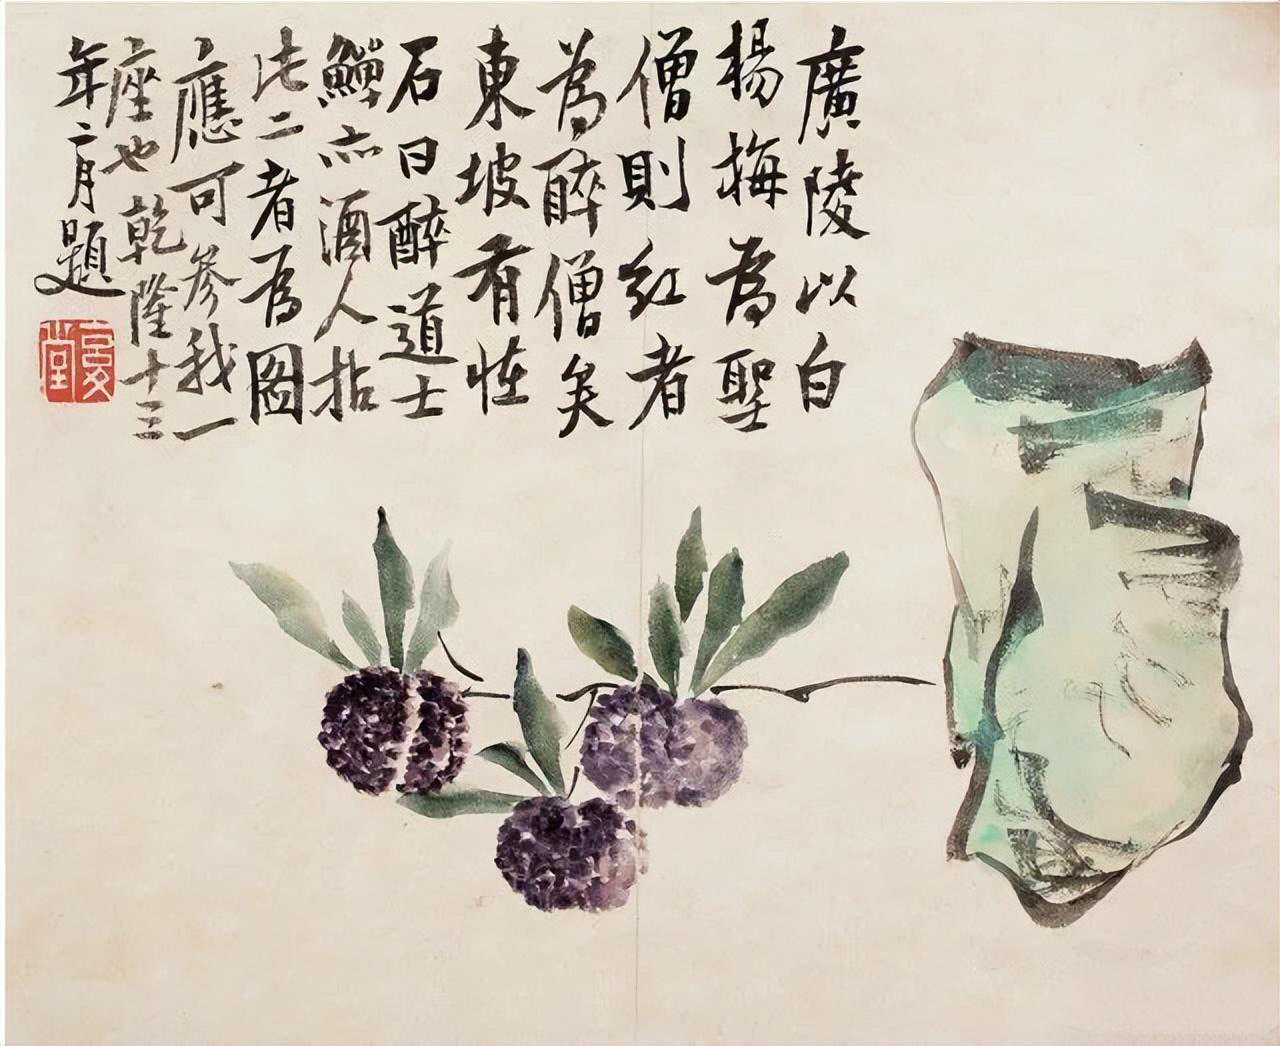 廣陵以白
楊梅為聖
僧則紅者
為醉僧矣
東坡有怪
石曰醉道士
鱓亦酒人拈
此二者為圖
應可參我一
座也乾隆十三
年二月題
复堂